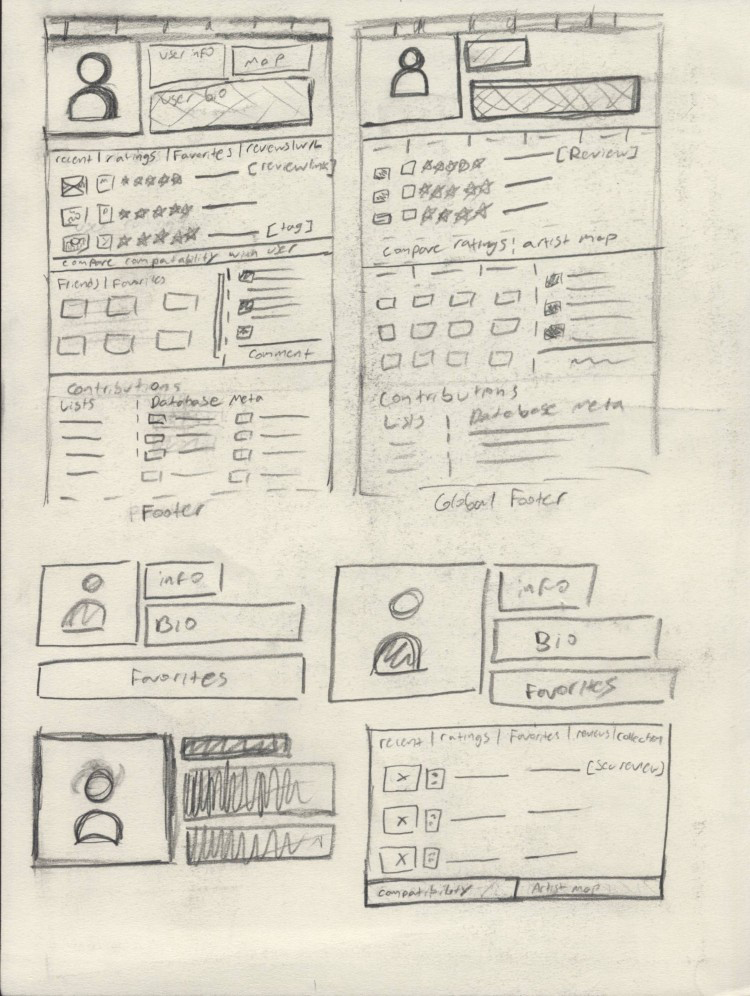 user info
map
user bio
recent | ratings | Favorites | reviews/wrb
[reviewlink]
[tag]
compare compatability with user
Friends | Favorites
Comment
Contributions
Lists
Database Meta
Footer
[Review]
compare ratings | artist map
Contributions
Lists
Database Meta
Global Footer
info
Bio
Favorites
info
Bio
Favorites
recent | ratings | Favorites | reviews | collection
[see review]
compatibility
Artist map